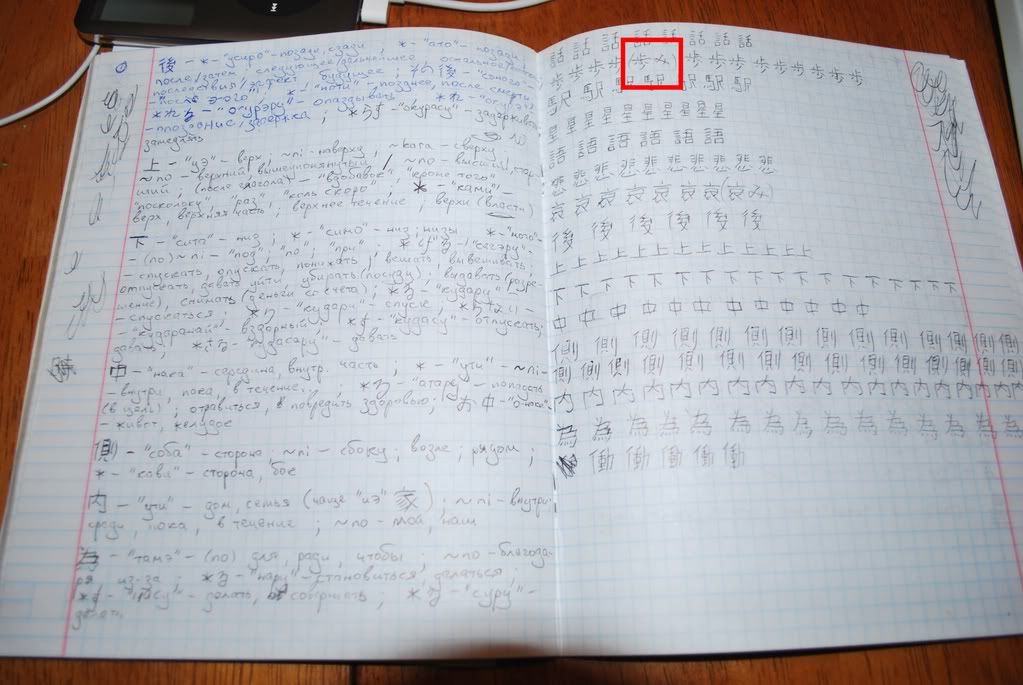 後 - "усиро" - позади, сзади ; * - "ато" - позади,
после/затем, следующее/дальнейшее, остальное
последствия/эффект, будущее ; その後 - "соно го"
- после этого ; * - "ноти" - позднее, после смерти
*れる - "окурэру" - опаздывать ; *れ - "окурэ"
- опоздание/задержка ; *らす - "окурасу" - задерживать,
замедлять
上 - "уэ" - верх, ~ni - наверху, ~kara - сверху
~no - верхний, вышеупомянутый / ~no - высший,
ший ; (после глагола) - "вдобавок", "кроме того"
"поскольку", "раз", "коль скоро" ; * - "ками" -
верх, верхняя часть ; верхнее течение ; верхи (власти)
下 - "сита" - низ ; * - "симо" - низ, низы * - "мото" -
- (no) ~ni - "под", "по", "при" *げる - "сагэру" -
- спускать, опускать, понижать ; вешать, вывешивать ;
отпускать, давать уйти, убирать (посуду) выдавать (разре-
шение), снимать (деньги со счета) ; *る - "кудару" -
- спускаться ; *り - "кудари" - спуск
- "кударанай" - вздорный ; *す - "кудасу" - отпускать,
давать ; *さる - "кудасару" - давать
中 - "нака" - середина, внутр. часть ; * - "ути" - ~ni -
- внутри, пока, в течение... ; *る - "атару" - попасть
(в цель) ; отравиться, повредить здоровью ; お中 - "о-нака"
- живот, желудок
側 - "соба" - сторона ~ni - сбоку ; возле ; рядом ;
* - "кава" - сторона, бок
内 - "ути" - дом, семья (чаще "иэ" 家) ; ~ni - внутри
среди, пока, в течение ; ~no - мой, наш
為 - "тамэ" - (no) для, ради, чтобы ; ~no - благода-
ря, из-за ; *る - "нару" - становиться, делаться ;
*す - "насу" - делать, совершать ; *る - "суру" -
делать
話 話 話 話 話 話 話 話
歩 歩 歩 歩 (歩み) 歩 歩 歩 歩 歩 歩 歩 歩
駅 駅 駅 駅 駅 駅
星 星 星 星 星 星 星 星
語 語 語 語 語 語
悲 悲 悲 悲 悲 悲 悲 悲
哀 哀 哀 哀 哀 哀 (哀み)
後 後 後 後 後 後
上 上 上 上 上 上 上 上 上 上 上 上 上
下 下 下 下 下 下 下 下 下 下 下 下 下 下 下 下
中 中 中 中 中 中 中 中 中 中 中
側 側 側 側 側 側 側 側 側 側 側 側
側 側 側 側 側 側 側 側 側 側 側 側 側 側
内 内 内 内 内 内 内 内 内 内 内 内 内 内 内 内
為 為 為 為 為 為 為 為 為 為 為 為 為 為
働 働 働 働 働